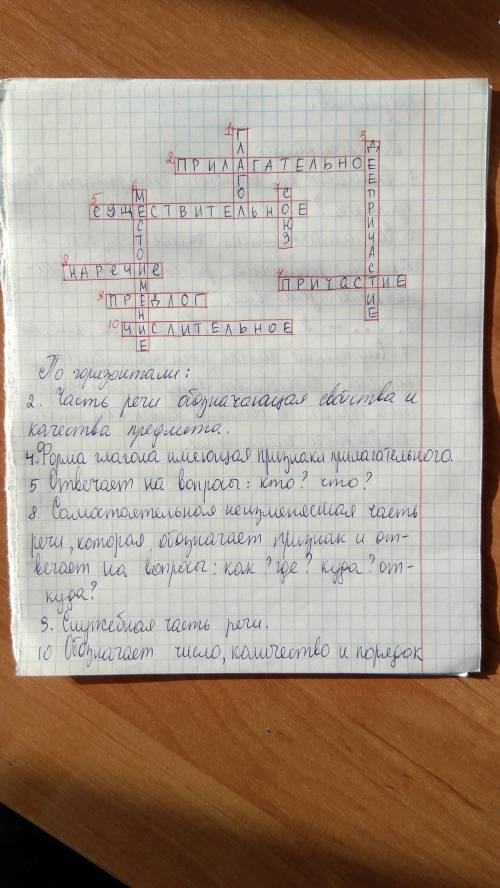 1
Г
Л
2 ПРИЛАГАТЕЛЬНОЕ
3
ДЕЕПРИЧАСТИЕ
Г
О
5 СУЩЕСТВИТЕЛЬНОЕ
6
МЕСТОИМЕНИЕ
7
СОЮЗ
8 НАРЕЧИЕ
4 ПРИЧАСТИЕ
9 ПРЕДЛОГ
10 ЧИСЛИТЕЛЬНОЕ
По горизонтали:
2. Часть речи обозначающая свойства и
качества предмета.
4. Форма глагола имеющая признаки прилагательного.
5 Отвечает на вопросы: кто? что?
8. Самостоятельная неизменяемая часть
речи, которая обозначает признак и от-
вечает на вопросы: как? где? куда? от-
куда?
9. Служебная часть речи.
10 Обозначает число, количество и порядок